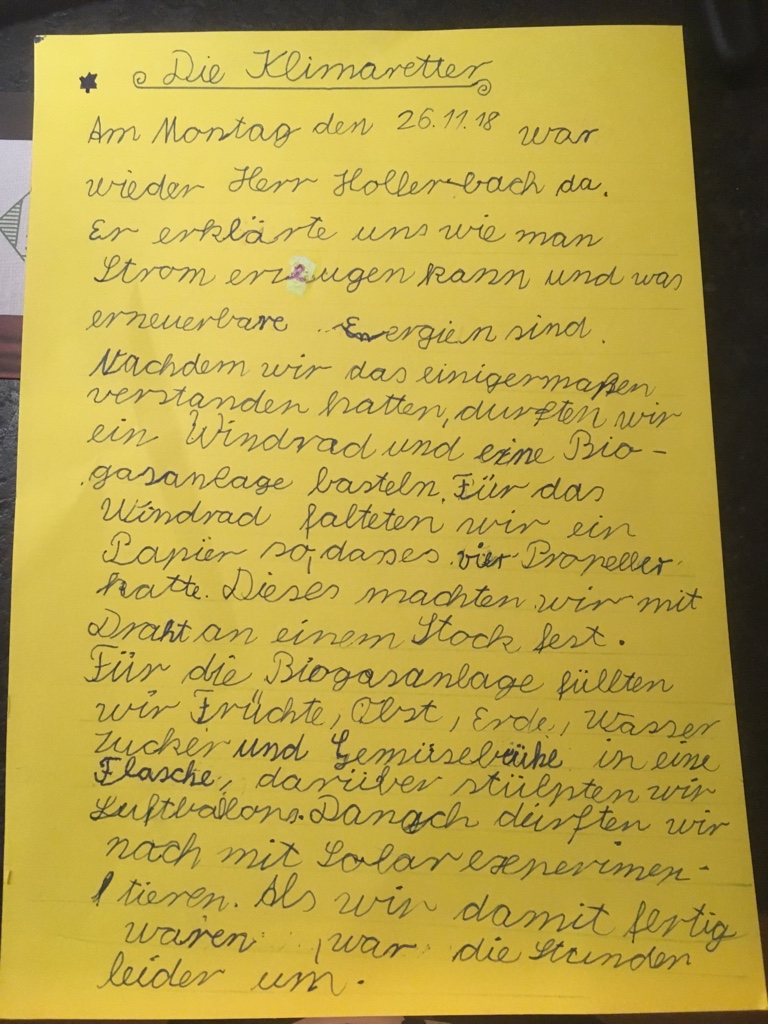 Die Klimaretter
Am Montag den 26.11.18 war
wieder Herr Hollerbach da.
Er erklärte uns wie man
Strom erzeugen kann und was
erneuerbare Energien sind.
Nachdem wir das einigermaßen
verstanden hatten, durften wir
ein Windrad und eine Bio-
gasanlage basteln. Für das
Windrad falteten wir ein
Papier so, dass es vier Propeller
hatte. Dieses machten wir mit
Draht an einem Stock fest.
Für die Biogasanlage füllten
wir Früchte, Obst, Erde, Wasser
Zucker und Gemüsebrühe in eine
Flasche, darüber stülpten wir
Luftballons. Danach durften wir
noch mit Solar experimen-
tieren. Als wir damit fertig
waren, war die Stunden
leider um.